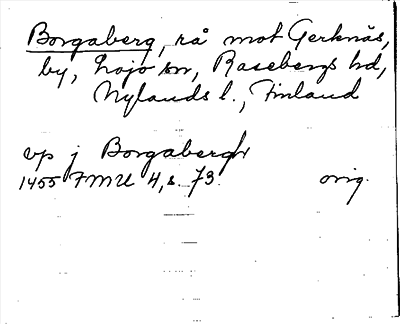 Borgaberg, rå mot Gerknäs,
by, Lojo sn, Rasebergs hd,
Nylands l., Finland
vp j Borgabergh
1455 FMU 4, s. 73. orig.